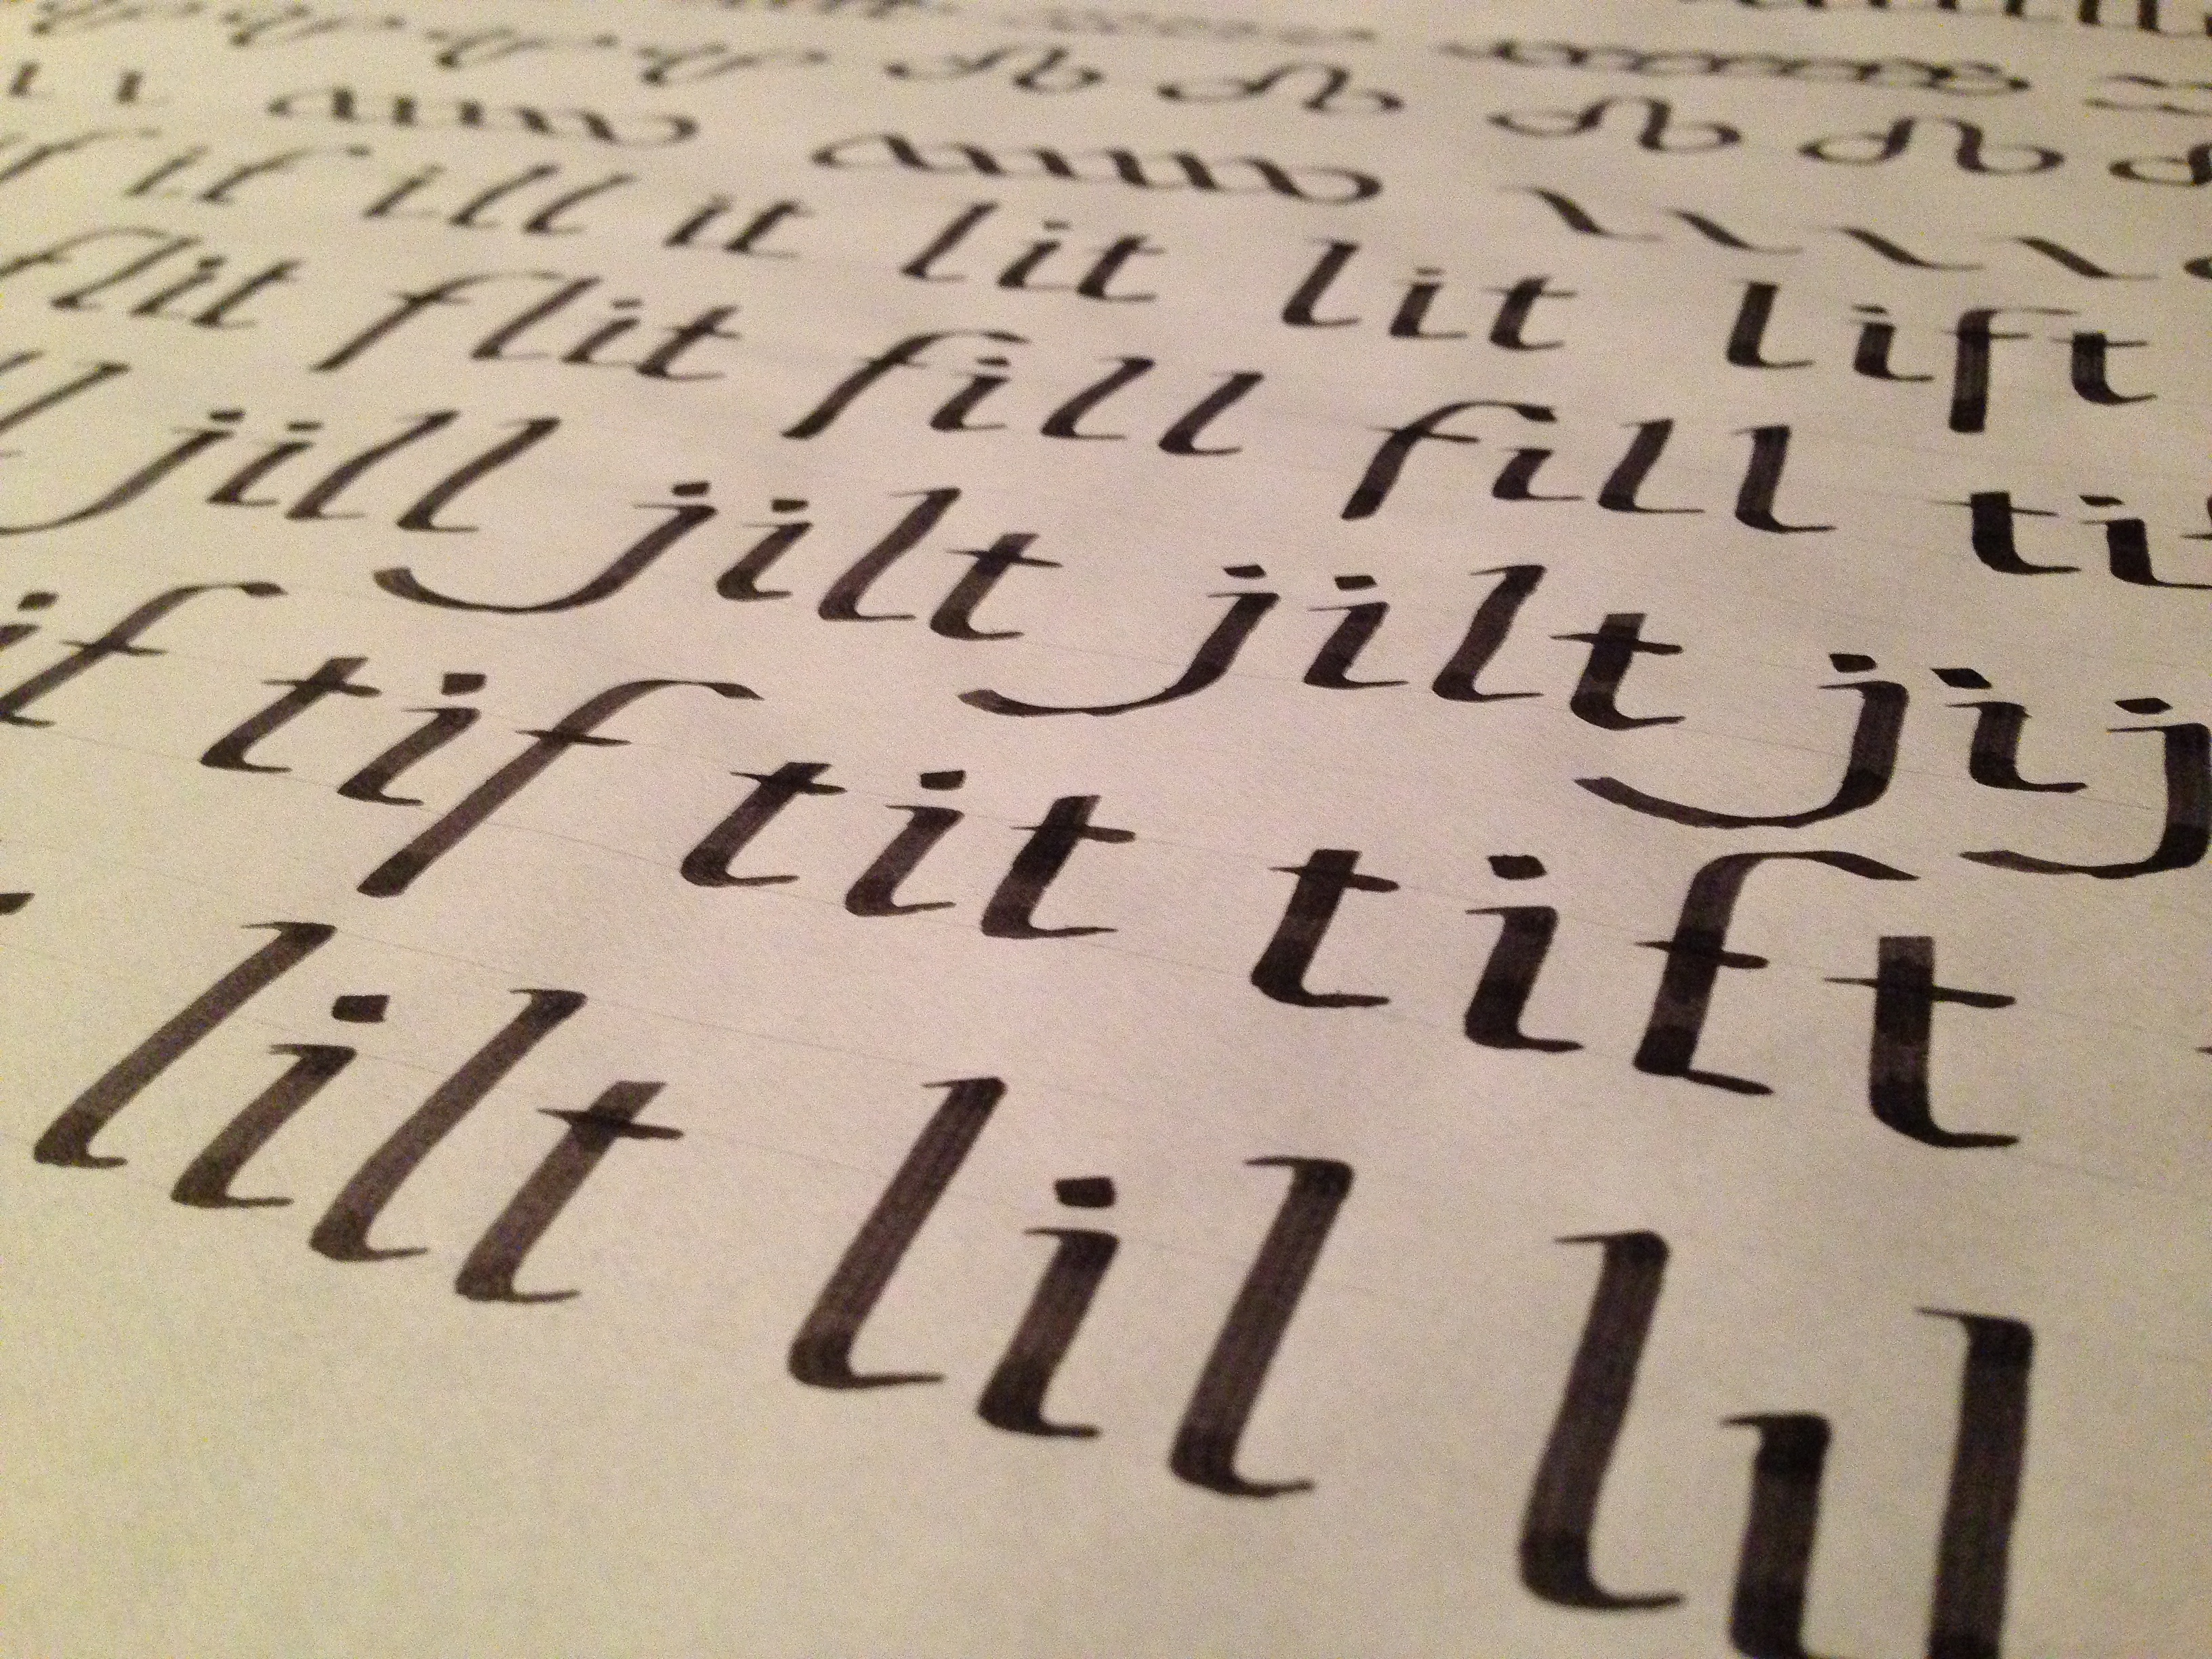 if if ill it lit lit lift
flit flit fill fill
jill jilt jilt jij
tif tit tift
lilt lil lil